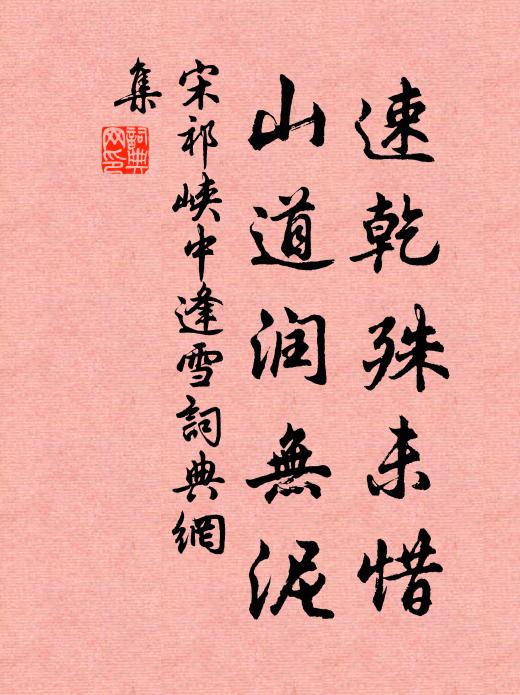 速乾殊未惜
山道润無泥
宋祁峡中逢雪詞典網
集
詞典
网印